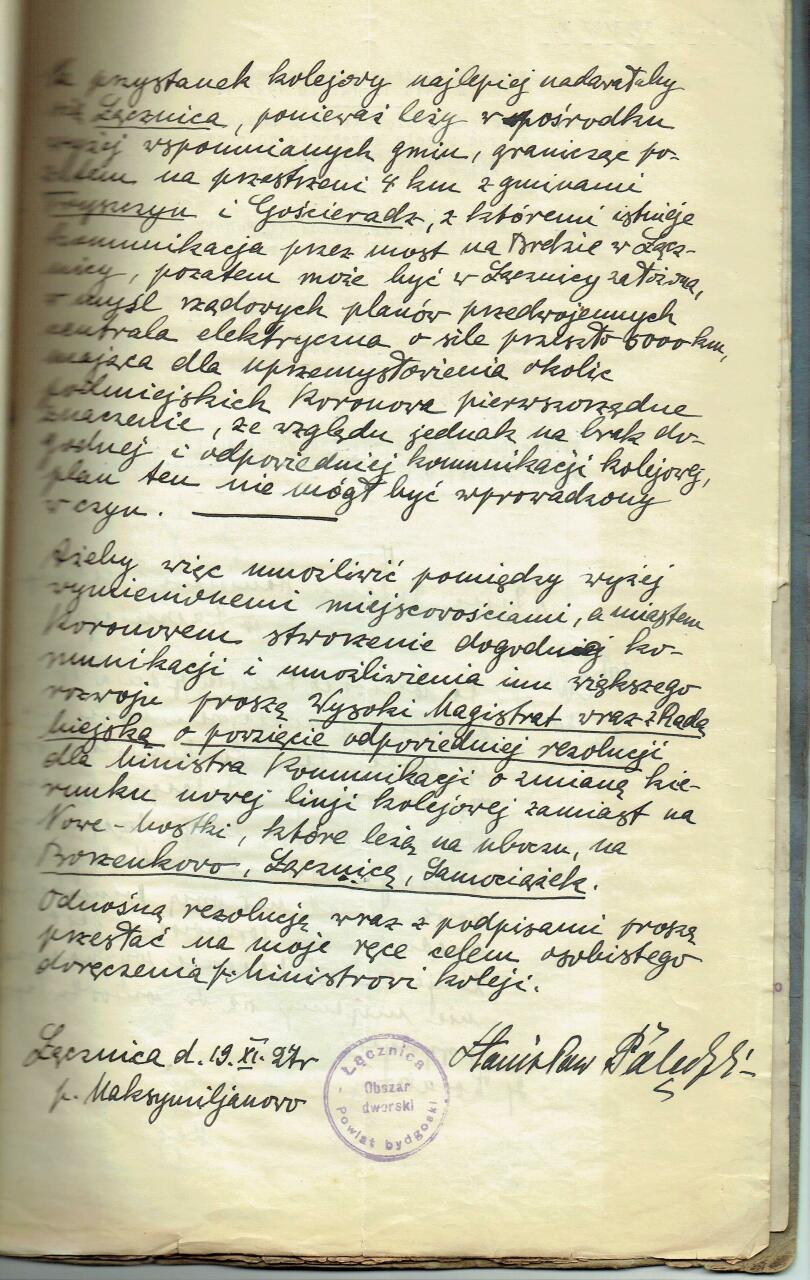 przystanek kolejowy najlepiej nadawałaby
się Łącznica, ponieważ leży w pośrodku
wyżej wspomnianych gmin, granicząc po-
zatem na przestrzeni 4 km z gminami
Tryszczyn i Gościeradz, z któremi istnieje
kommunikacja przez most na Brdzie w Łącz-
nicy, pozatem może być w Łącznicy założona,
w myśl rządowych planów przedwojennych
centrala elektryczna o sile przeszło 5000 km,
mająca dla uprzemysłowienia okolic
podmiejskich Koronowa pierwszorzędne
znaczenie, ze względu jednak na brak do-
godnej i odpowiedniej komunikacji kolejowej,
plan ten nie mógł być wprowadzony
w czyn.
Ażeby więc umożliwić pomiędzy wyżej
wymienionemi miejscowościami, a miastem
Koronowem stworzenie dogodniej ko-
munikacji i umożliwienia imu większego
rozwoju proszę Wysoki Magistrat wraz z Radą
Miejską o powzięcie odpowiedniej rezolucji
dla Ministra Komunikacji o zmianą kie-
runku nowej linji kolejowej zamiast na
Nowe-Mostki, które leżą na uboczu, na
Bożenkowo, Łącznicę, Samociążek.
Odnośną rezolucję wraz z podpisami proszę
przesłać na moje ręce celem osobistego
doręczenia p. Ministrowi kolei.
Łącznica d. 19. XI. 27 r
p. Maksymiljanowo
Stanisław
Łącznica
Obszar
dworski
Powiat bydgoski